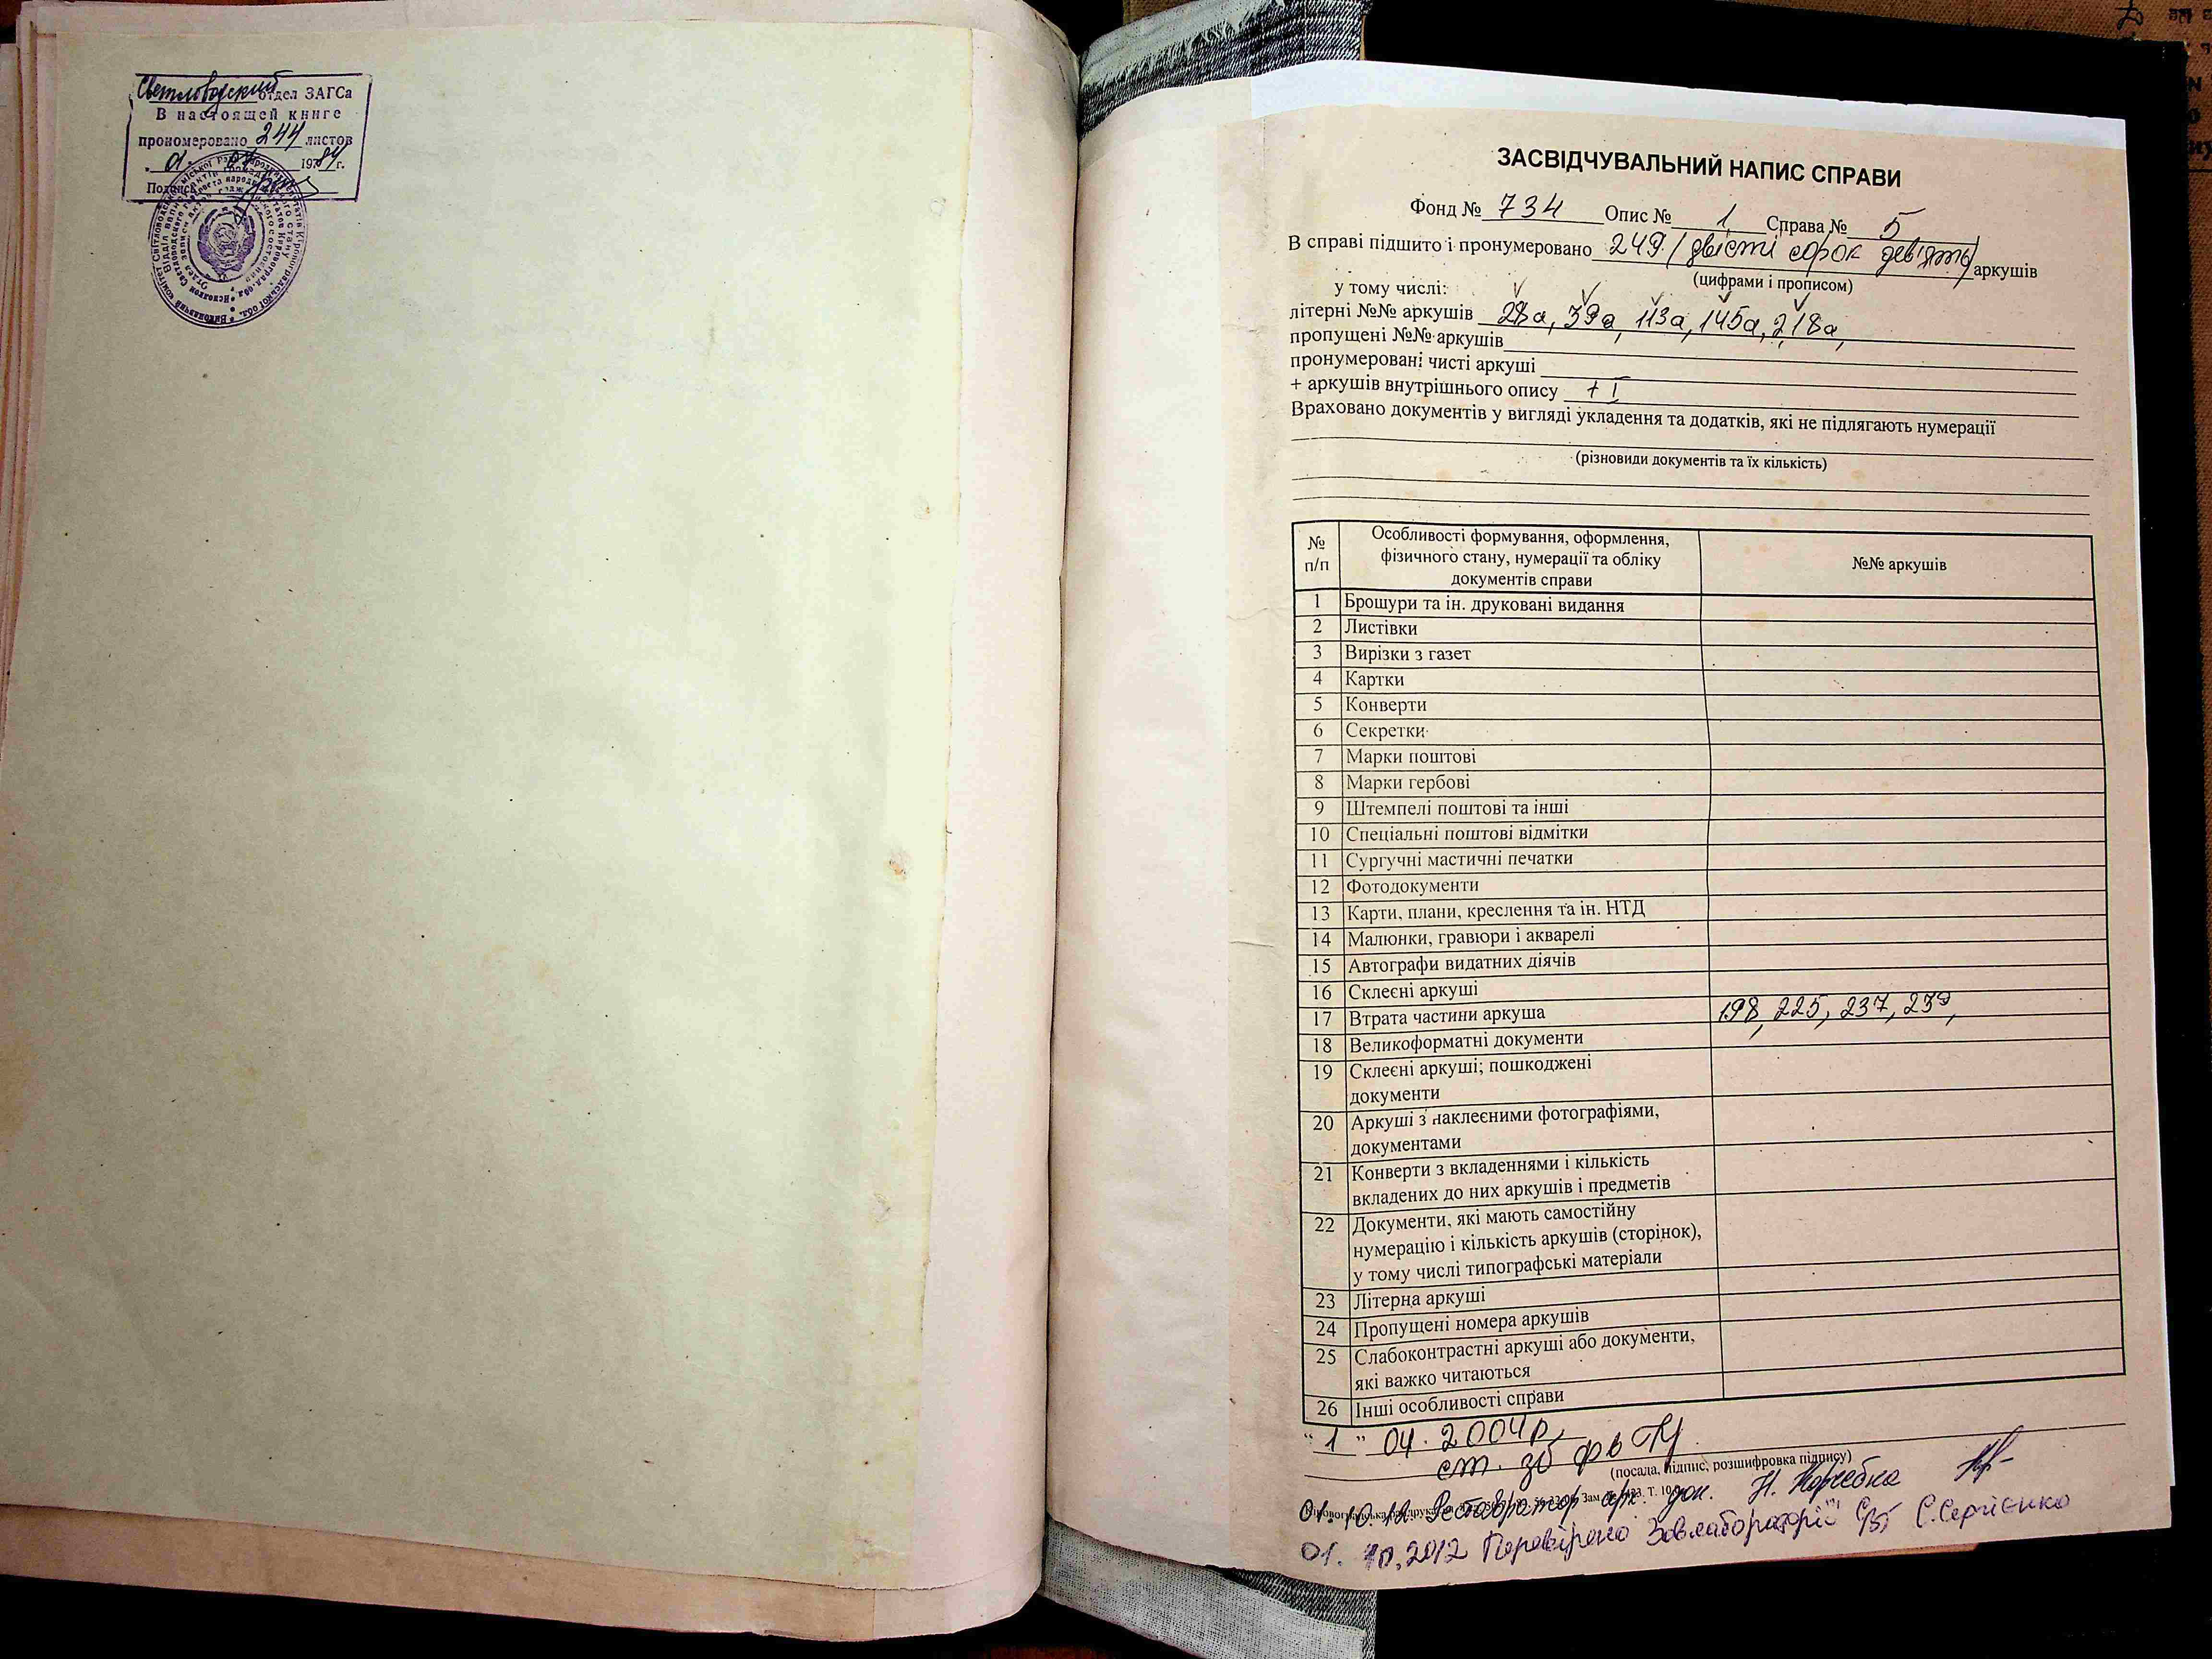 Светловодский отдел ЗАГСа
В настоящей книге
прономеровано 244 листов
01. 1984 г.
Подпись
ЗАСВІДЧУВАЛЬНИЙ НАПИС СПРАВИ
Фонд № 734 Опис № 1 Справа № 5
В справі підшито і пронумеровано 249 (двісті сорок девять) аркушів
(цифрами і прописом)
у тому числі:
літерні №№ аркушів 28а, 39а, 113а, 145а, 218а,
пропущені №№ аркушів
пронумеровані чисті аркуші
+ аркушів внутрішнього опису + I
Враховано документів у вигляді укладення та додатків, які не підлягають нумерації
(різновиди документів та їх кількість)
№ п/п Особливості формування, оформлення, фізичного стану, нумерації та обліку документів справи №№ аркушів
1 Брошури та ін. друковані видання
2 Листівки
3 Вирізки з газет
4 Картки
5 Конверти
6 Секретки
7 Марки поштові
8 Марки гербові
9 Штемпелі поштові та інші
10 Спеціальні поштові відмітки
11 Сургучні мастичні печатки
12 Фотодокументи
13 Карти, плани, креслення та ін. НТД
14 Малюнки, гравюри і акварелі
15 Автографи видатних діячів
16 Склеєні аркуші
17 Втрата частини аркуша 198, 225, 237, 239,
18 Великоформатні документи
19 Склеєні аркуші; пошкоджені
документи
20 Аркуші з наклеєними фотографіями,
документами
21 Конверти з вкладеннями і кількість
вкладених до них аркушів і предметів
22 Документи, які мають самостійну
нумерацію і кількість аркушів (сторінок),
у тому числі типографські матеріали
23 Літерна аркуші
24 Пропущені номера аркушів
25 Слабоконтрастні аркуші або документи,
які важко читаються
26 Інші особливості справи
"1" 04. 2004р.
ст. зб фв
(посада, підпис, розшифровка підпису)
01. 10. 12. Реставратор арх. док. Н.
01. 10. 2012 Перевірено Завлабораторії С. Сергієнко